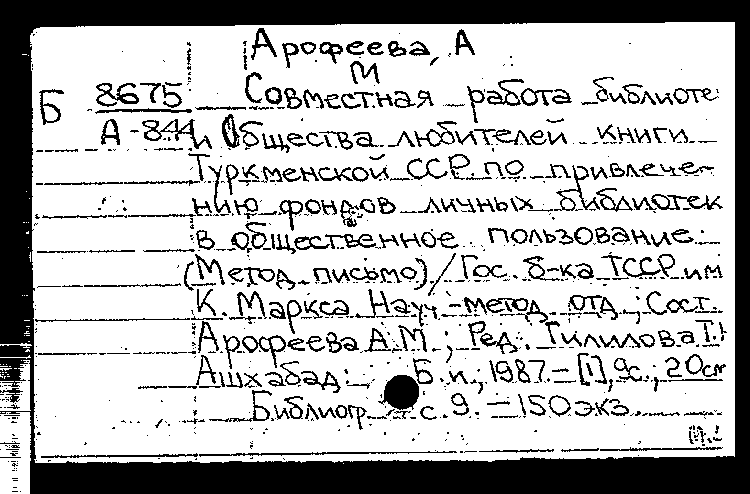 Арофеева, А
М
Б 8675 Совместная работа библиоте
А-844 и Общества любителей книги
Туркменской ССР по привлече-
нию фондов личных библиотек
в общественное пользование:
(Метод. письмо) / Гос. б-ка ТССР им
К. Маркса. Науч.-метод. отд.; Сост.
Арофеева А.М.; Ред. Тилилова Т.
Ашхабад: Б.и., 1987.-[1], 9с.; 20см
Библиогр. с. 9. - 150 экз.